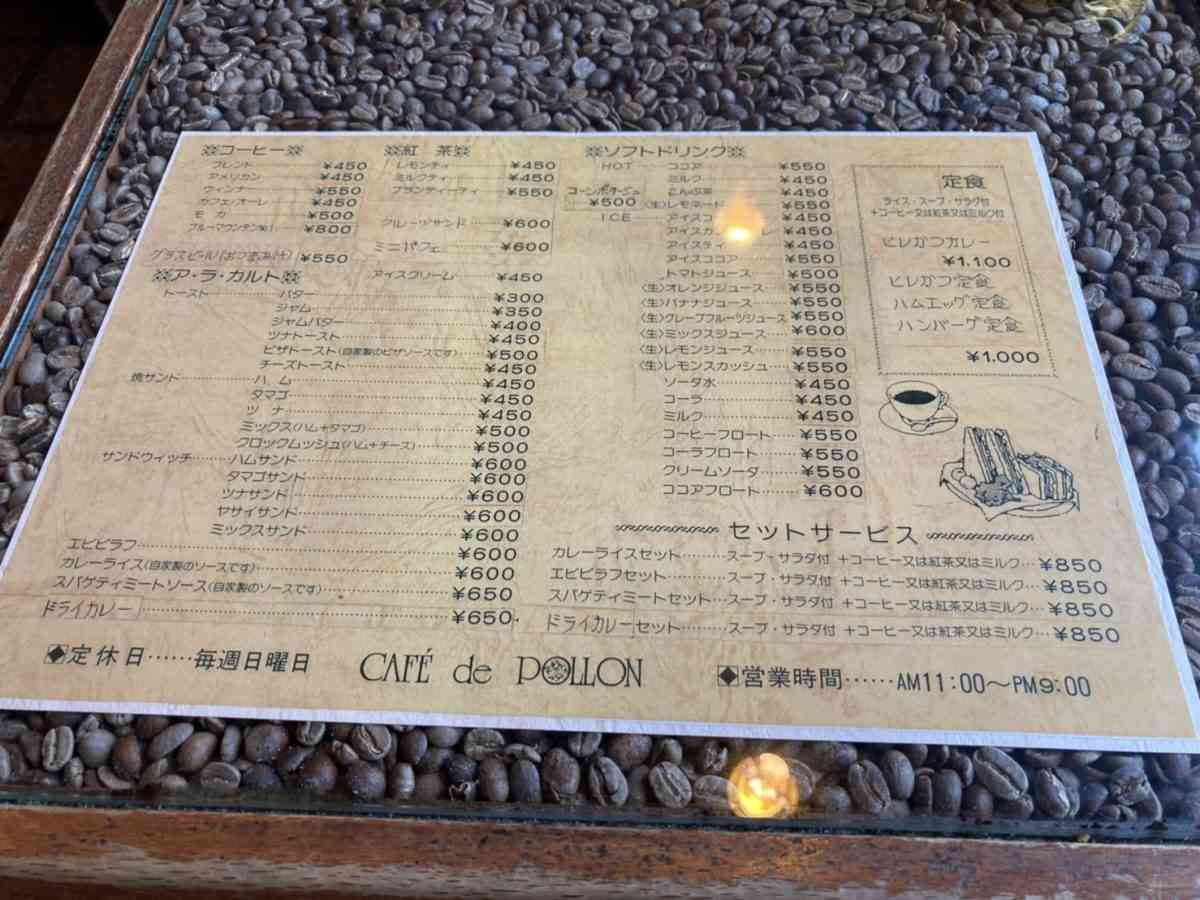 ※コーヒー※
ブレンド ¥450
アメリカン ¥450
ウィンナー ¥550
カフェ/オーレ ¥450
モカ ¥500
ブルーマウンテンNo.1 ¥800
グラスビール(おつまみ付) ¥550
※紅 茶※
レモンティ ¥450
ミルクティ ¥450
ブランディーティ ¥550
フルーツサンド ¥600
ミニパフェ ¥600
アイスクリーム ¥450
※ア・ラ・カルト※
トースト バター ¥300
ジャム ¥350
ジャムバター ¥400
ツナトースト ¥450
ピザトースト(自家製のピザソースです) ¥500
チーズトースト ¥450
焼サンド ハ ム ¥450
タマゴ ¥450
ツ ナ ¥450
ミックス(ハム+タマゴ) ¥500
クロックムッシュ(ハム+チーズ) ¥500
サンドウィッチ ハムサンド ¥600
タマゴサンド ¥600
ツナサンド ¥600
ヤサイサンド ¥600
ミックスサンド ¥600
エビピラフ ¥600
カレーライス(自家製のソースです) ¥600
スパゲティミートソース(自家製のソースです) ¥650
ドライカレー ¥650
※ソフトドリンク※
HOT ココア ¥550
ミルク ¥450
こんぶ茶 ¥450
〈生〉レモネード ¥550
コーンポタージュ
¥500
ICE アイスコ ¥450
アイスカ レ ¥450
アイスティ ¥450
アイスココア ¥550
トマトジュース ¥500
〈生〉オレンジジュース ¥550
〈生〉バナナジュース ¥550
〈生〉グレープフルーツジュース ¥550
〈生〉ミックスジュース ¥600
〈生〉レモンジュース ¥550
〈生〉レモンスカッシュ ¥550
ソーダ水 ¥450
コーラ ¥450
ミルク ¥450
コーヒーフロート ¥550
コーラフロート ¥550
クリームソーダ ¥550
ココアフロート ¥600
定食
ライス・スープ・サラダ付
+コーヒー又は紅茶又はミルク付
ヒレかつカレー
¥1,100
ヒレかつ定食
ハムエッグ定食
ハンバーグ定食
¥1,000
セットサービス
カレーライスセット スープ・サラダ付 +コーヒー又は紅茶又はミルク ¥850
エビピラフセット スープ・サラダ付 +コーヒー又は紅茶又はミルク ¥850
スパゲティミートセット スープ・サラダ付 +コーヒー又は紅茶又はミルク ¥850
ドライカレーセット スープ・サラダ付 +コーヒー又は紅茶又はミルク ¥850
◆定休日……毎週日曜日
CAFÉ de POLLON
◆営業時間……AM11:00〜PM9:00